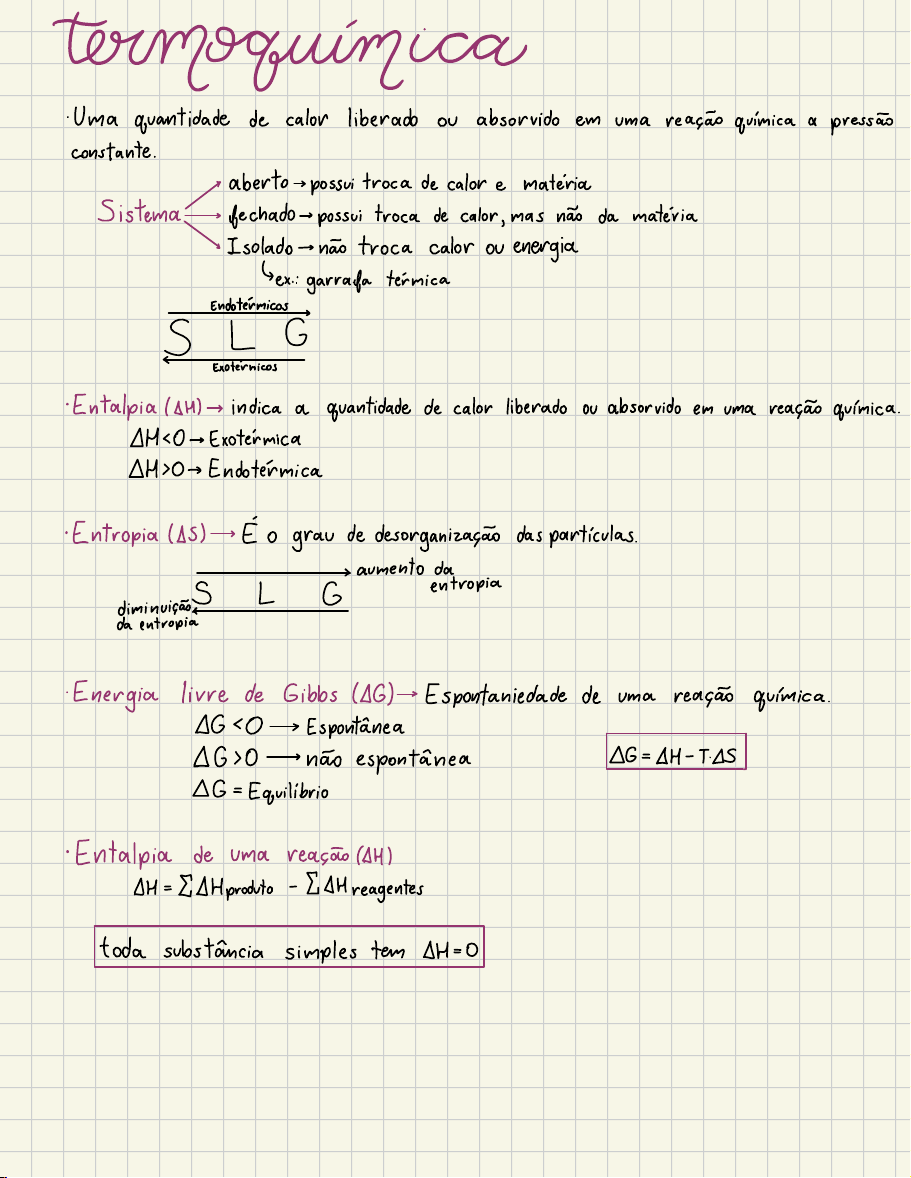 termoquímica
·Uma quantidade de calor liberado ou absorvido em uma reação química a pressão
constante.
aberto→possui troca de calor e matéria
Sistema → fechado→possui troca de calor, mas não da matéria
Isolado→não troca calor ou energia
↳ex.: garrafa térmica
Endotérmicos
S L G
Exotérmicos
·Entalpia (ΔH)→ indica a quantidade de calor liberado ou absorvido em uma reação química.
ΔH<0→Exotérmica
ΔH>0→Endotérmica
·Entropia (ΔS)→É o grau de desorganização das partículas.
aumento da
entropia
S L G
diminuição
da entropia
·Energia livre de Gibbs (ΔG)→Espontaniedade de uma reação química.
ΔG<0→Espontânea
ΔG>0→não espontânea
ΔG=ΔH-T·ΔS
ΔG=Equilíbrio
·Entalpia de uma reação (ΔH)
ΔH=ΣΔH produto - ΣΔH reagentes
toda substância simples tem ΔH=0